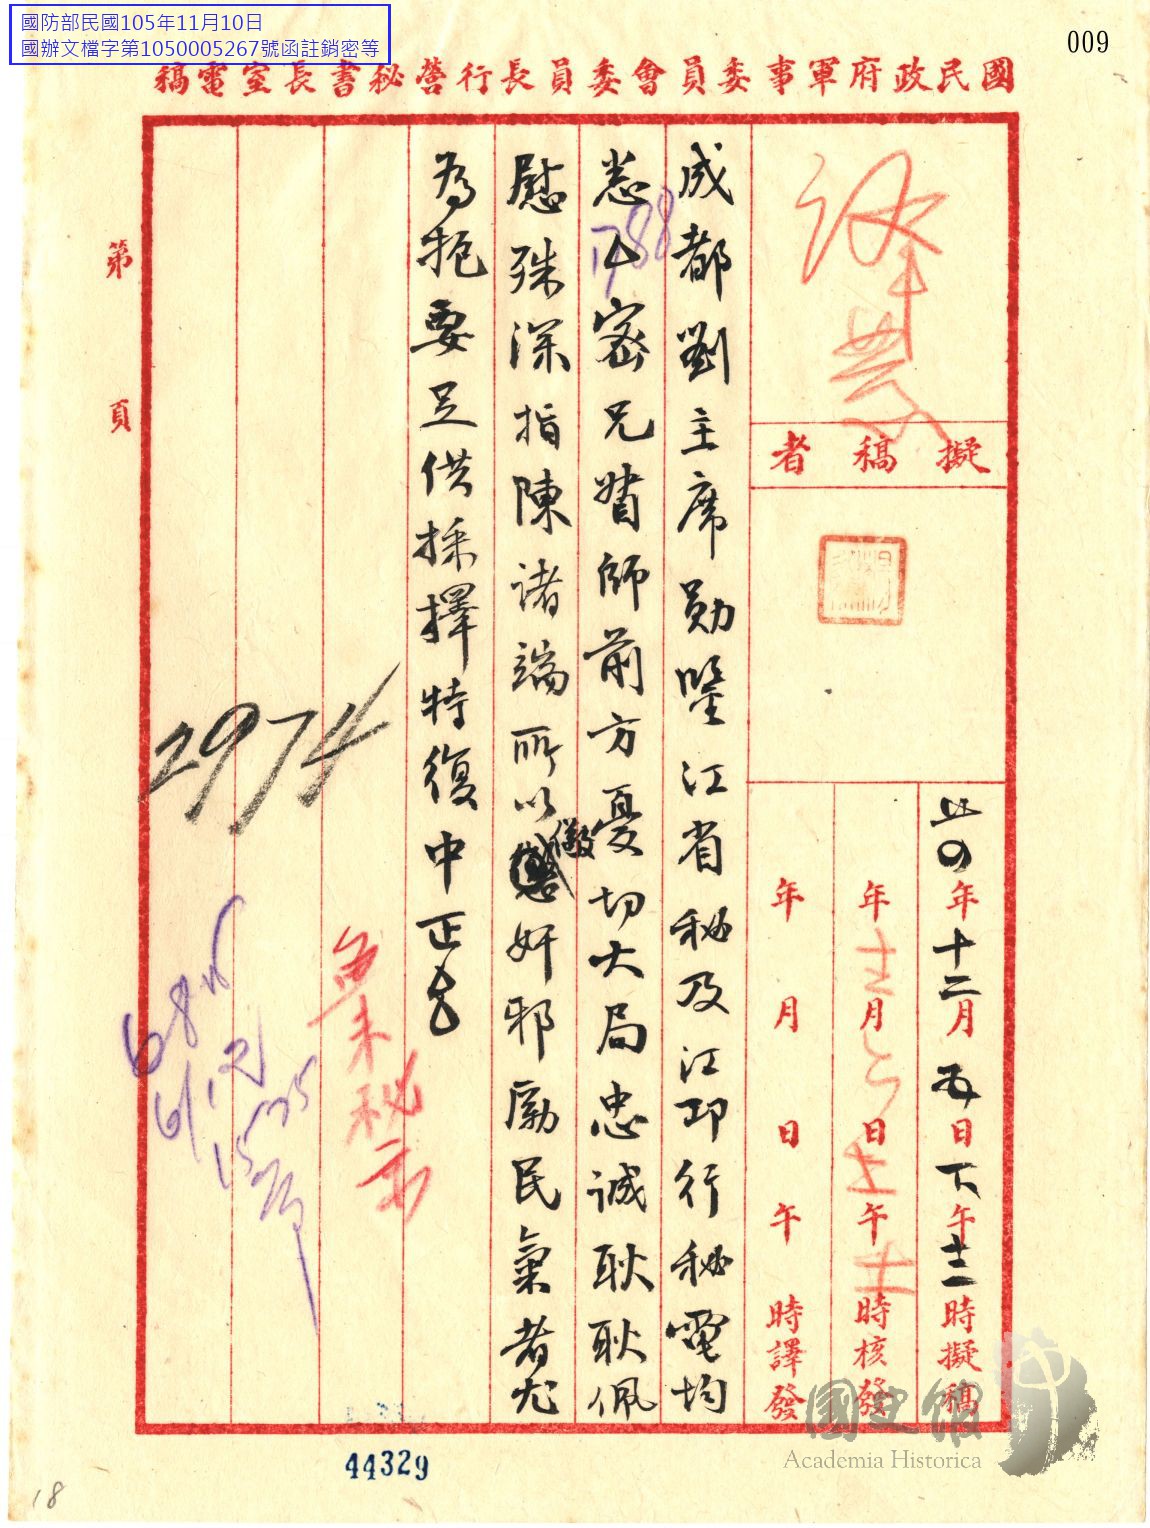 國防部民國105年11月10日
國辦文檔字第1050005267號函註銷密等
009
國民政府軍事委員會委員長行營秘書長室電稿
擬稿者
廿四年十二月五日下午十二時擬稿
年十二月六日上午十一時核發
年月日午時譯發
成都劉主席勛鑒江省秘及江卬行秘電均
悉 密兄督師前方憂切大局忠誠耿耿佩
慰殊深指陳諸端所以儆奸邪勵民氣者尤
為扼要足供採擇特復中正
1788
2974
第頁
44329
18
國史館
Academia Historica